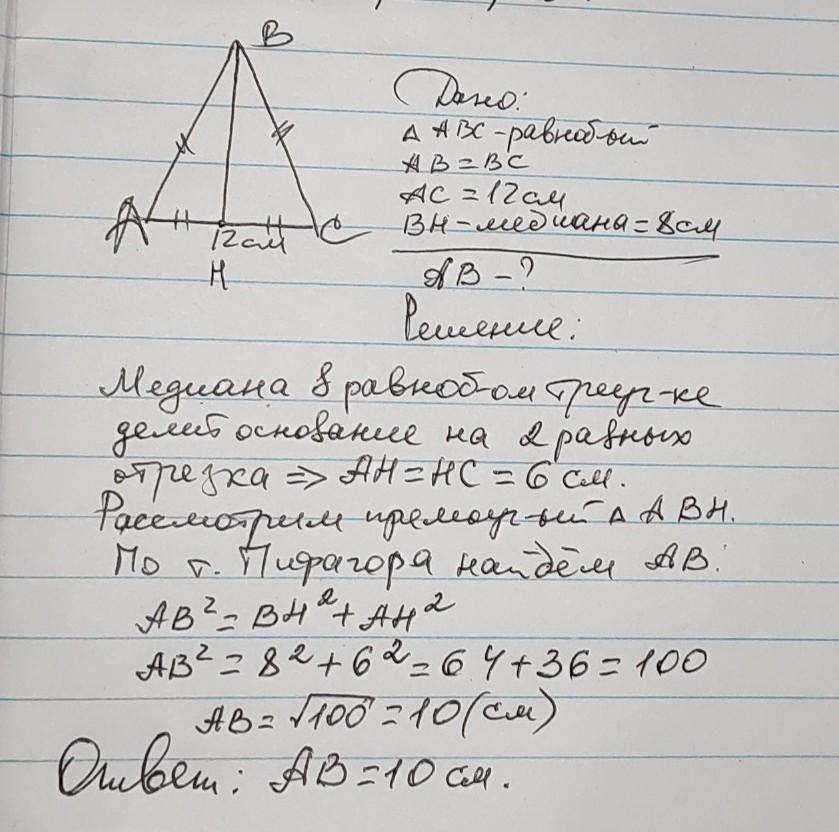 B
A
C
12см
H
Дано:
△ ABC - равноб-ый
AB = BC
AC = 12см
BH - медиана = 8см
AB - ?
Решение:
Медиана в равноб-ом треуг-ке
делит основание на 2 равных
отрезка => AH = HC = 6 см.
Рассмотрим прямоуг-ый △ ABH.
По т. Пифагора найдём AB:
AB² = BH² + AH²
AB² = 8² + 6² = 64 + 36 = 100
AB = √100 = 10 (см)
Ответ: AB = 10 см.